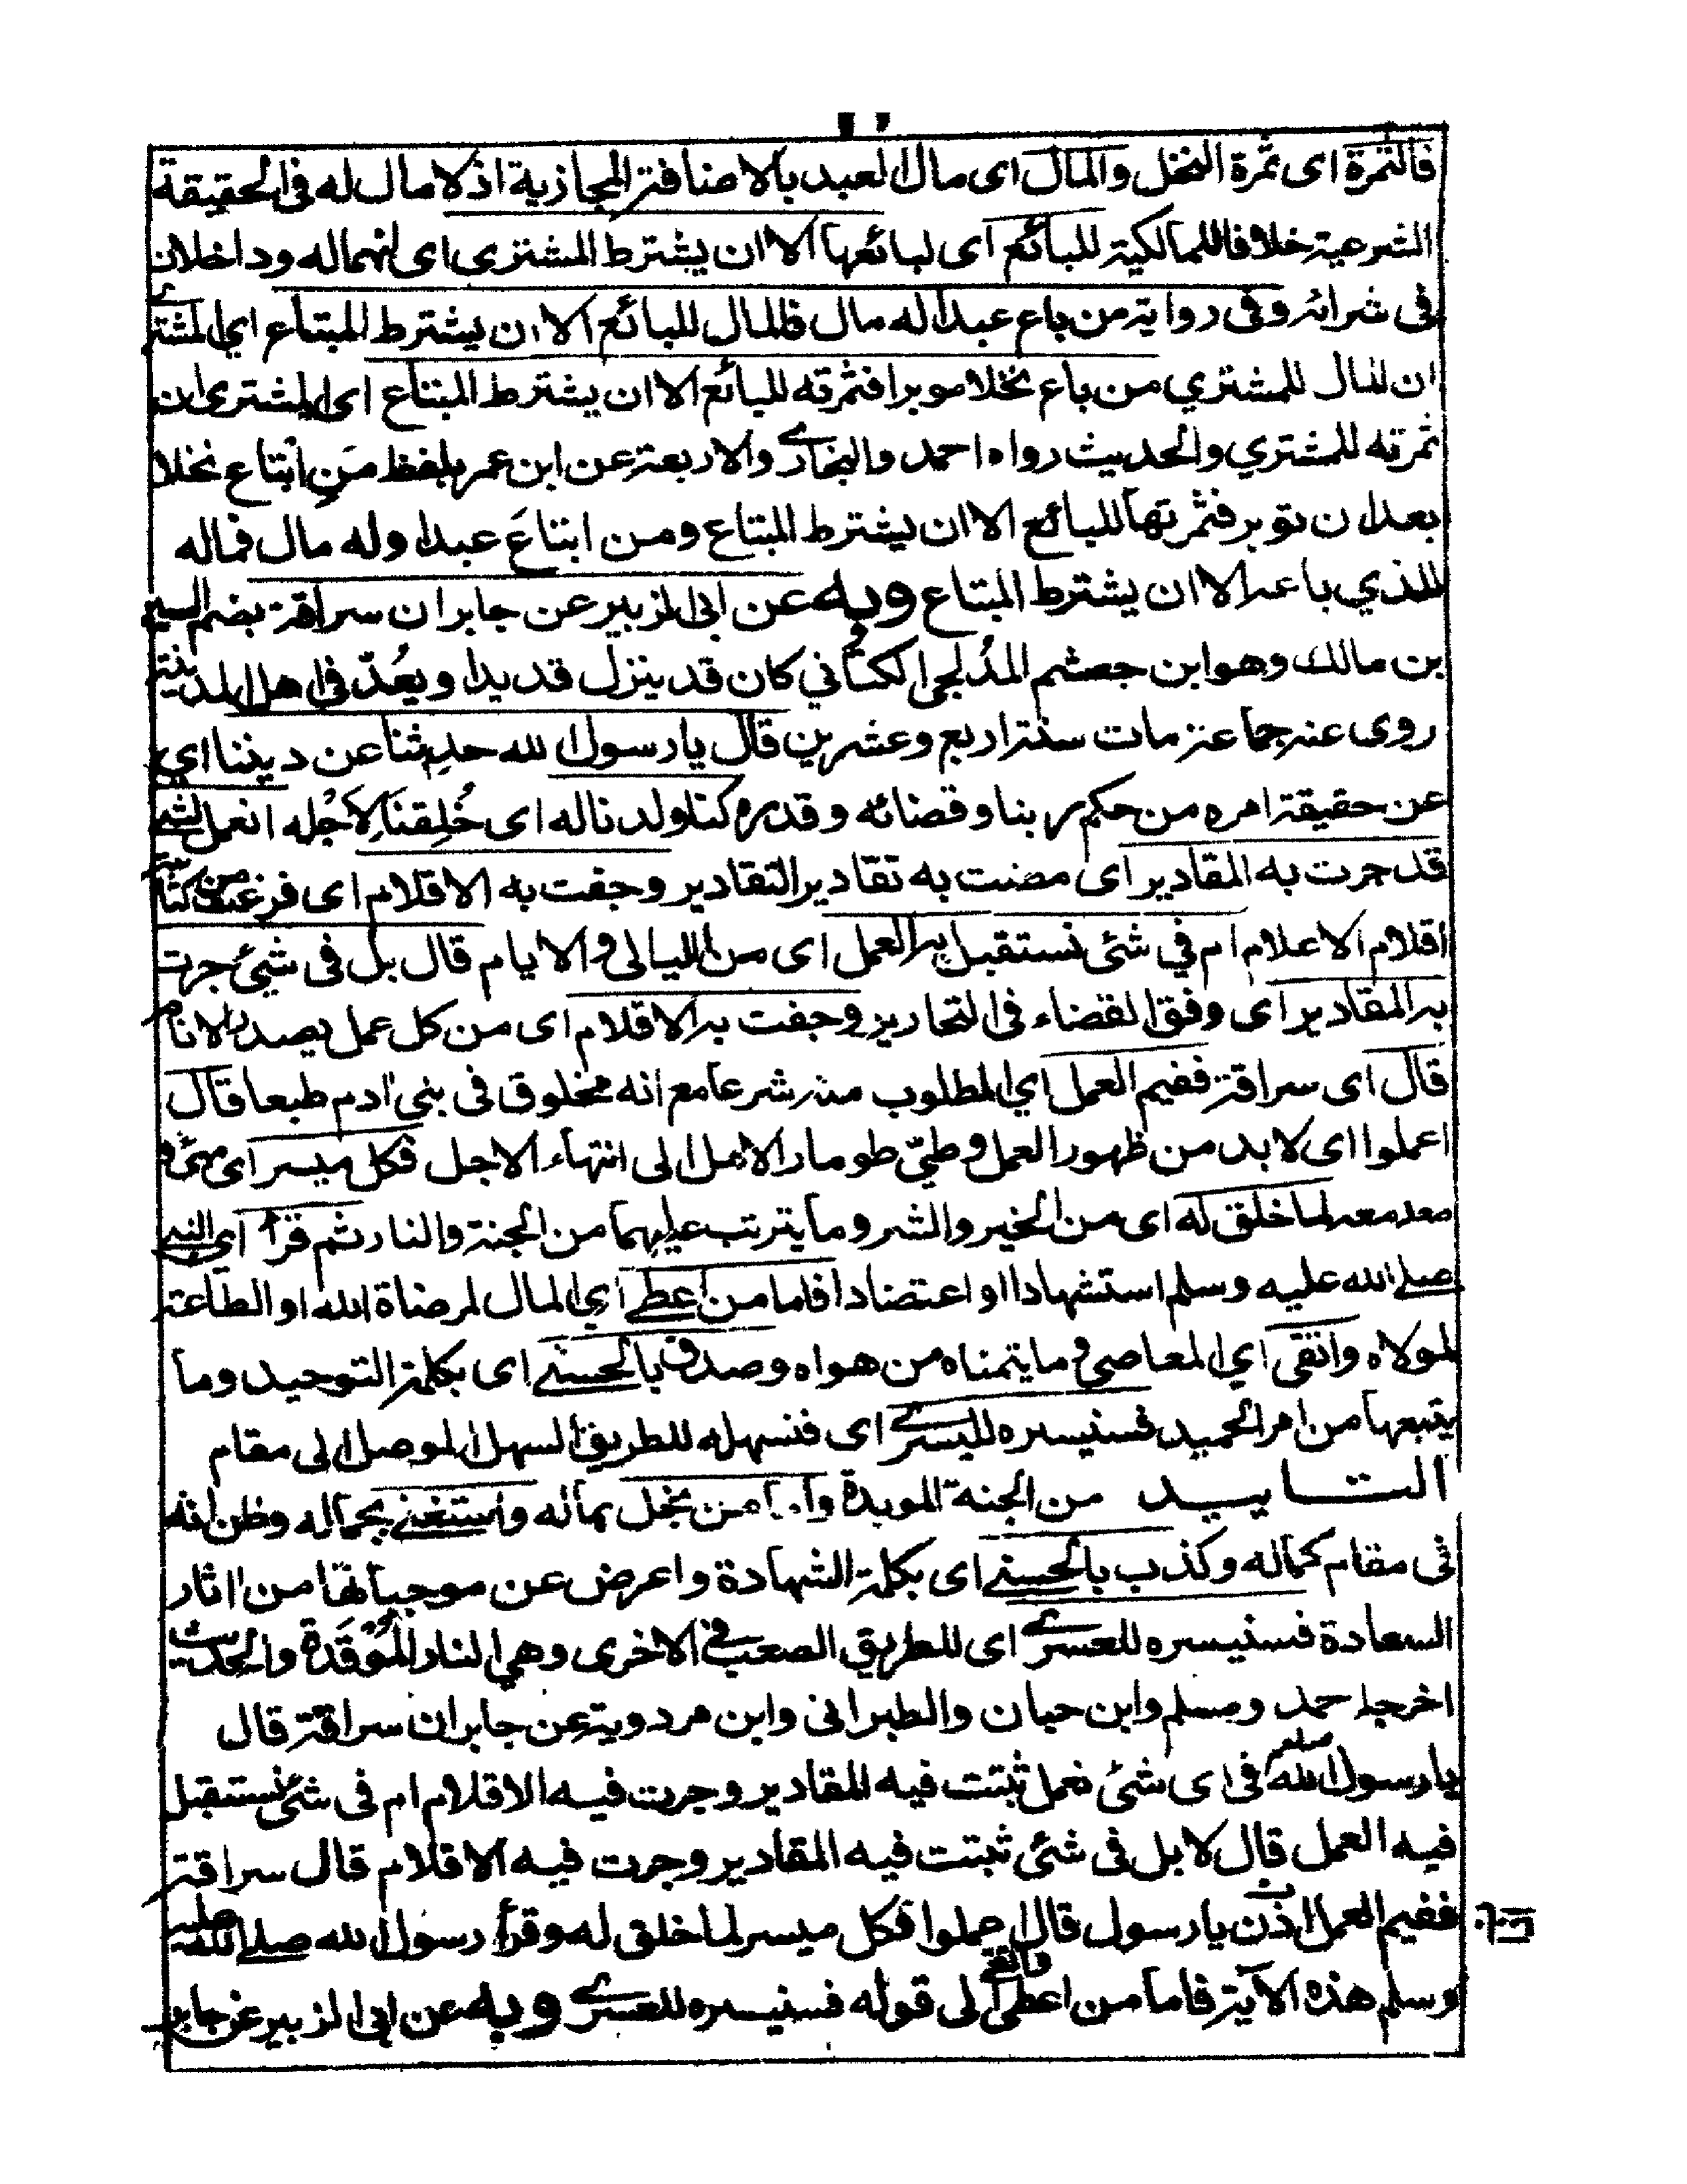 فالثمرة اى ثمرة النخل والمال اى مال العبد بالاضافة المجازية اذ لا مال له فى الحقيقة
الشرعية خلافا للمالكية للبائع اى لبائعها الا ان يشترط المشترى اى انهما له وداخلان
فى شرائه وفى رواية من باع عبدا له مال فالمال للبائع الا ان يشترط المبتاع اي المشترے
ان المال للمشتري من باع نخلا موبرا فثمرته للبائع الا ان يشترط المبتاع اى المشترى ان
ثمرته للمشتري والحديث رواه احمد والبخارے والاربعة عن ابن عمر بلفظ مَنِ ابتاع نخلا
بعد ان توبر فثمرتها للبائع الا ان يشترط المبتاع ومن ابتاعَ عبدا وله مال فماله
للذي باعه الا ان يشترط المبتاع وبه عن ابى الزبير عن جابر ان سراقة بضم السين
بن مالك وهو ابن جعشم المدُلجى الكناني كان قد ينزل قديدا ويعُدّ فى اهل المدينة
روى عنه جماعة مات سنة اربع وعشرين قال يا رسول الله حدثنا عن ديننا اي
عن حقيقة امره من حكم ربنا وقضائه وقدره كنا ولدنا له اى خُلِقنَا لِاَجْله انعمل لشئ
قد جرت به المقادير اى مضت به تقادير التقادير وجفت به الاقلام اى فرغت من كتابته
اقلام الاعلام ام في شئى نستقبل به العمل اى من الليالى والايام قال بل فى شيئ جرت
به المقادير اى وفق القضاء فى التحارير وجفت به الاقلام اى من كل عمل يصدر الانام
قال اى سراقة ففيم العمل اي المطلوب منه شرعا مع انه مخلوق فى بنى ادم طبعا قال
اعملوا اى لا بد من ظهور العمل وطيّ طومار الامل الى انتهاء الاجل فكل ميسر اى
معد معه لما خلق له اى من الخير والشر وما يترتب عليهما من الجنة والنار ثم قرأ اي النبے
صلے الله عليه وسلم استشهادا او اعتضادا فاما من اعطے اي المال لمرضاة الله او الطاعة
لمولاه واتقى اي المعاصى وما يتمناه من هواه وصدق بالحسنے اى بكلمة التوحيد وما
يتبعها من امر الحميد فسنيسره لليسرے اى فنسهله للطريق السهل الموصل الى مقام
التابيد من الجنة الموبدة واما من بخل بماله واستغنے بجماله وظن انه
فى مقام كماله وكذب بالحسنے اى بكلمة الشهادة واعرض عن موجباتها من اثار
السعادة فسنيسره للعسرے اى للطريق الصعب فے الاخرى وهى النار المُوْقَدة والحديث
اخرجه احمد ومسلم وابن حبان والطبرانى وابن مردوية عن جابر ان سراقة قال
يا رسول الله صلعم فى اى شئى نعمل ثبتت فيه المقادير وجرت فيه الاقلام ام فى شئ نستقبل
فيه العمل قال لا بل فى شئى ثبتت فيه المقادير وجرت فيه الاقلام قال سراقة
ففيم العمل اذن يا رسول قال اعملوا فكل ميسر لما خلق له وقرأ رسول الله صلے الله عليه
وسلم هذه الآية فاما من اعطى واتقے الى قوله فسنيسره للعسرے وبه عن ابى الزبير عن جابر